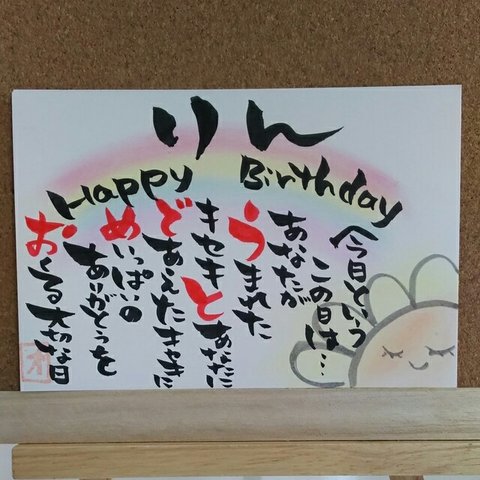 りん
Happy Birthday
今日という
この日は…
あなたが
うまれた
キセキとあなたに
であえたキセキに
めいっぱいの
ありがとうを
おくる大切な日